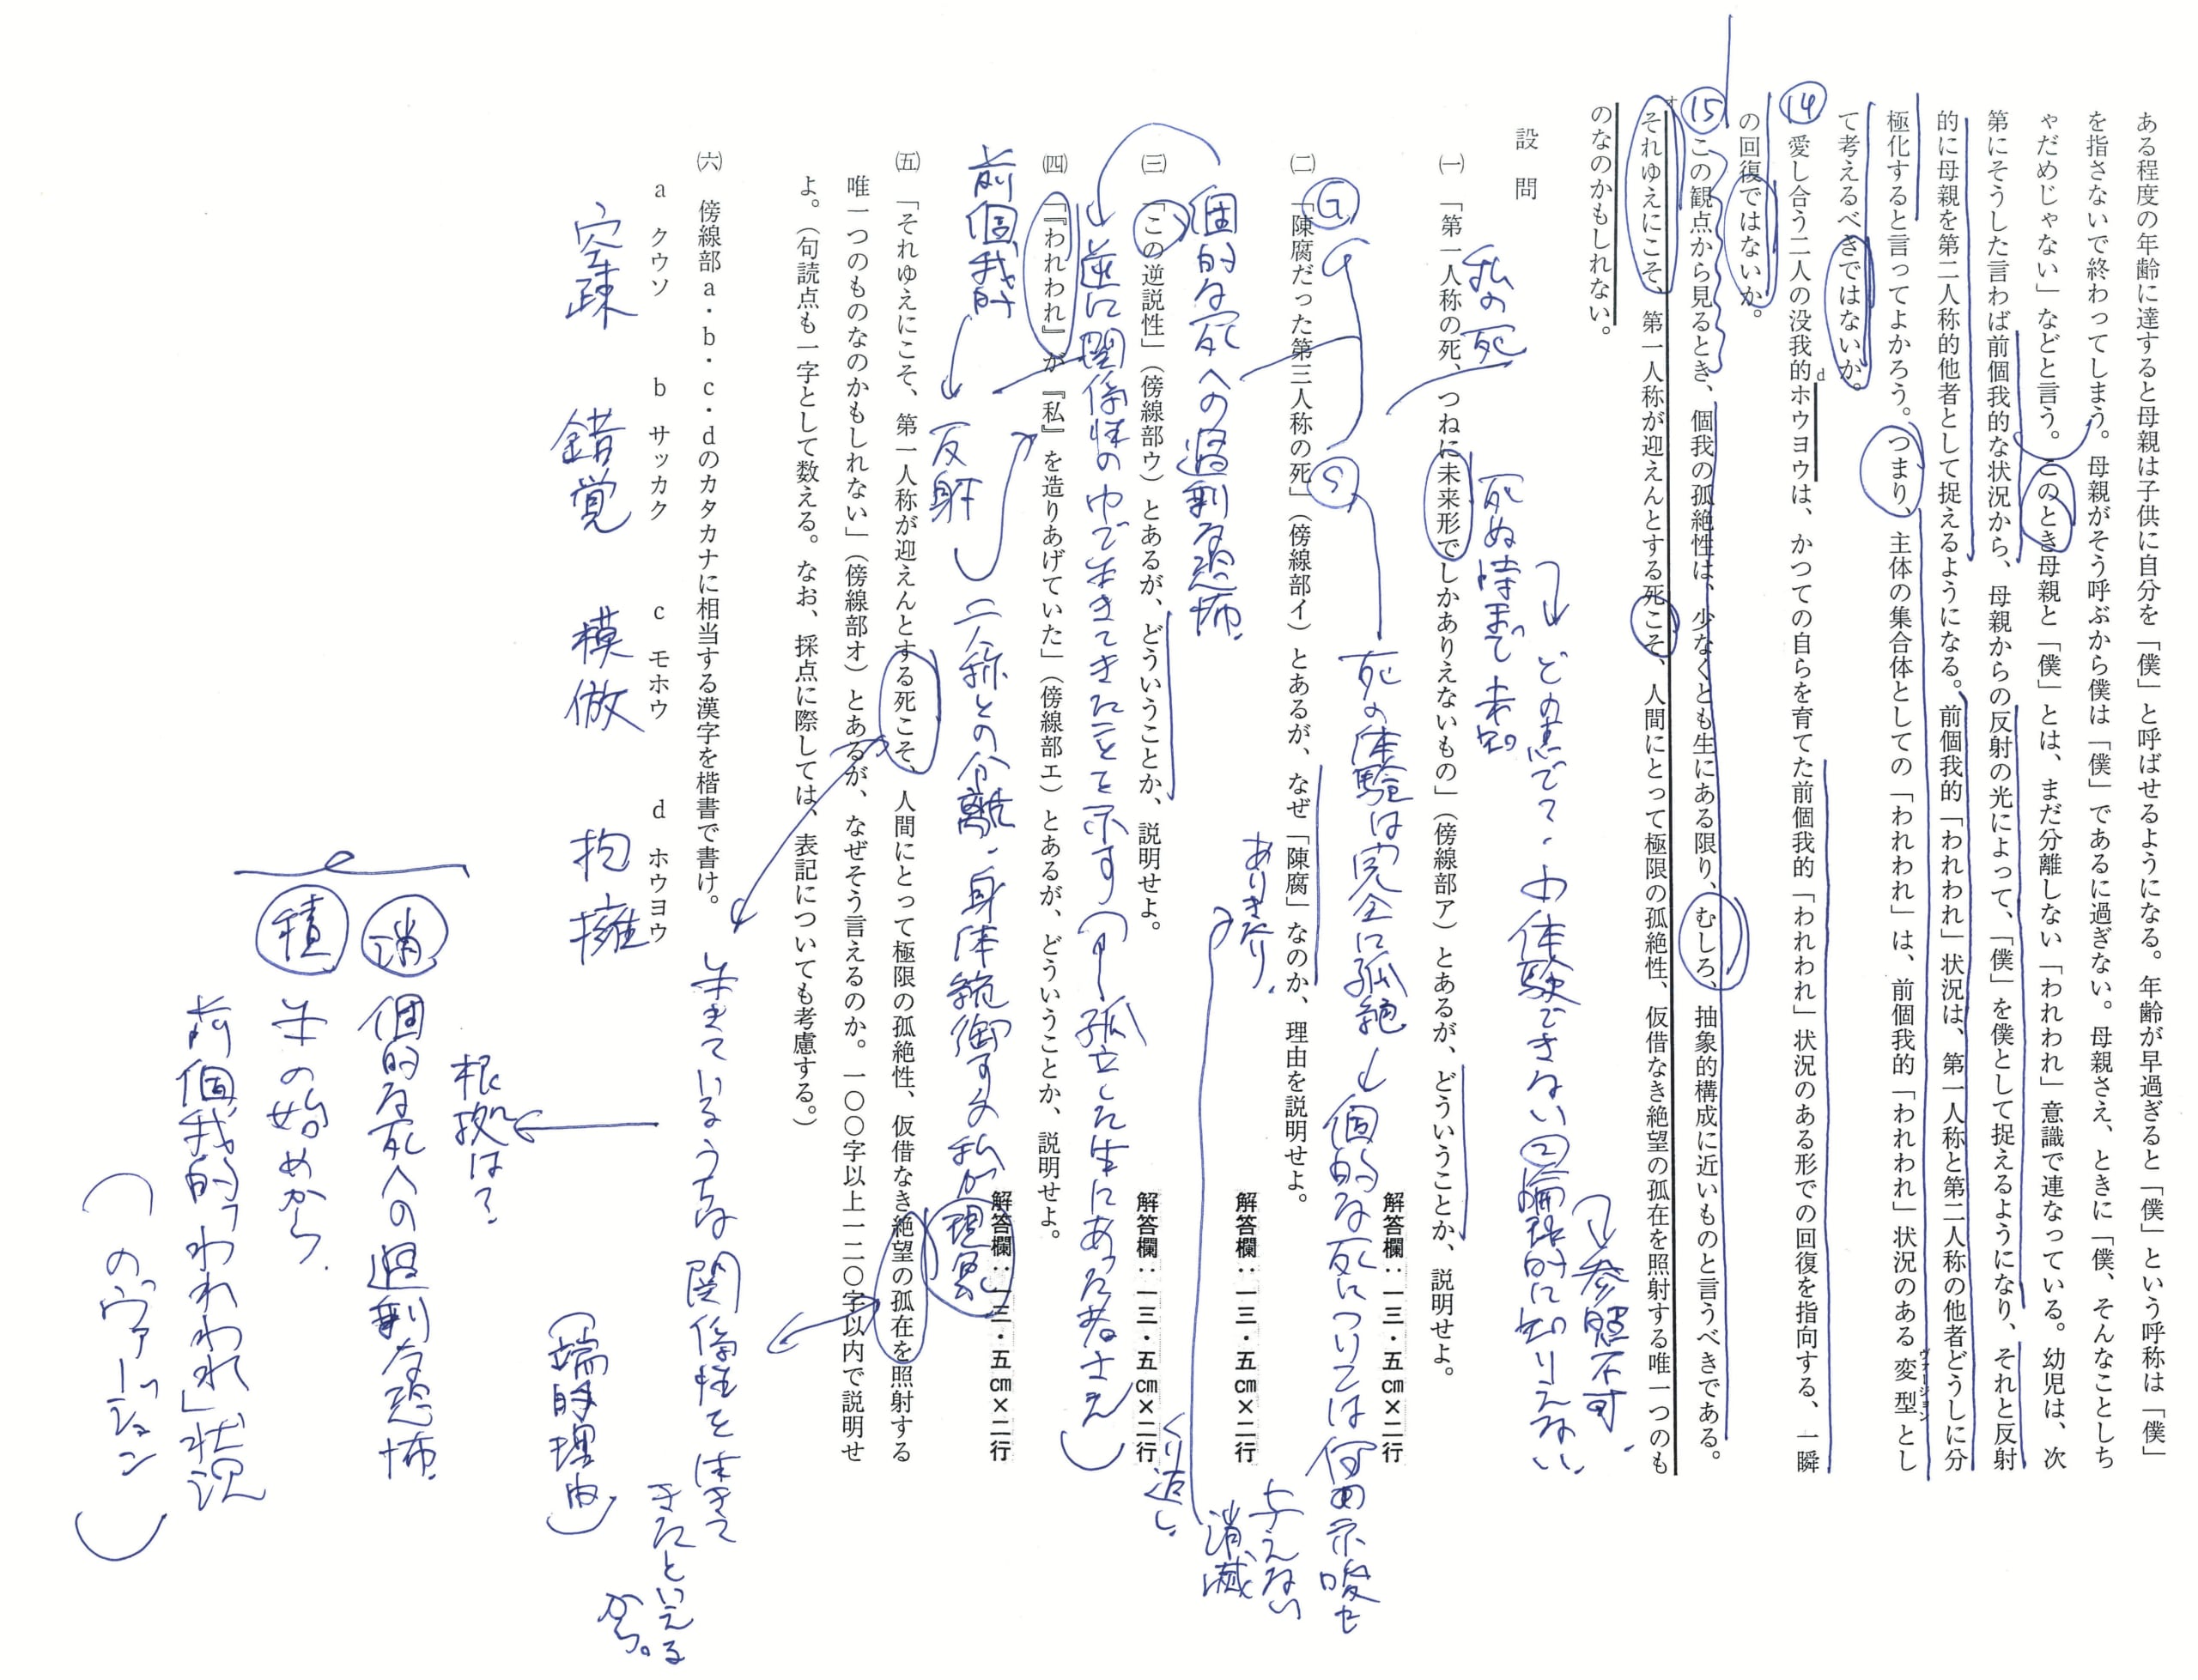 ある程度の年齢に達すると母親は子供に自分を「僕」と呼ばせるようになる。年齢が早過ぎると「僕」という呼称は「僕」
を指さないで終わってしまう。母親がそう呼ぶから僕は「僕」であるに過ぎない。母親さえ、ときに「僕、そんなことしち
ゃだめじゃない」などと言う。このとき母親と「僕」とは、まだ分離しない「われわれ」意識で連なっている。幼児は、次
第にそうした言わば前個我的な状況から、母親からの反射の光によって、「僕」を僕として捉えるようになり、それと反射
的に母親を第二人称的他者として捉えるようになる。前個我的「われわれ」状況は、第一人称と第二人称の他者どうしに分
極化すると言ってよかろう。つまり、主体の集合体としての「われわれ」は、前個我的「われわれ」状況のある変型とし
ヴァージョン
て考えるべきではないか。
⑭ 愛し合う二人の没我的ホウヨウは、かつての自らを育てた前個我的「われわれ」状況のある形での回復を指向する、一瞬
d
の回復ではないか。
⑮ この観点から見るとき、個我の孤絶性は、少なくとも生にある限り、むしろ、抽象的構成に近いものと言うべきである。
オ
それゆえにこそ、第一人称が迎えんとする死こそ、人間にとって極限の孤絶性、仮借なき絶望の孤在を照射する唯一つのも
のなのかもしれない。
設問
㈠ 「第一人称の死、つねに未来形でしかありえないもの」（傍線部ア）とあるが、どういうことか、説明せよ。
私の死 死ぬ時まで未知
どの点で？・体験できない ②論理的に知りえない
参照不可.
解答欄：一三・五㎝×二行
㈡ 「陳腐だった第三人称の死」（傍線部イ）とあるが、なぜ「陳腐」なのか、理由を説明せよ。
G S
死の体験は完全に孤絶→個的な死については何の示唆も
与えない
消滅
ありきたり.
くり返し.
解答欄：一三・五㎝×二行
㈢ 「この逆説性」（傍線部ウ）とあるが、どういうことか、説明せよ。
個的な死への過剰な恐怖.
逆に関係性の中で生きてきたことを示す（孤立した生にあった者さえ）
解答欄：一三・五㎝×二行
㈣ 「『われわれ』が『私』を造りあげていた」（傍線部エ）とあるが、どういうことか、説明せよ。
前個我的→反射
二人称との分離・身体統御する私が現実
解答欄：一三・五㎝×二行
㈤ 「それゆえにこそ、第一人称が迎えんとする死こそ、人間にとって極限の孤絶性、仮借なき絶望の孤在を照射する
唯一つのものなのかもしれない」（傍線部オ）とあるが、なぜそう言えるのか。一〇〇字以上一二〇字以内で説明せ
よ。（句読点も一字として数える。なお、採点に際しては、表記についても考慮する。）
生きているうちは関係性を生きて
きたといえる
から。
（端的理由）
㈥ 傍線部a・b・c・dのカタカナに相当する漢字を楷書で書け。
a クウソ b サッカク c モホウ d ホウヨウ
空疎 錯覚 模倣 抱擁
根拠は？
消 個的な死への過剰な恐怖.
積 生の始めから.
前個我的「われわれ」状況
（のヴァージョン）